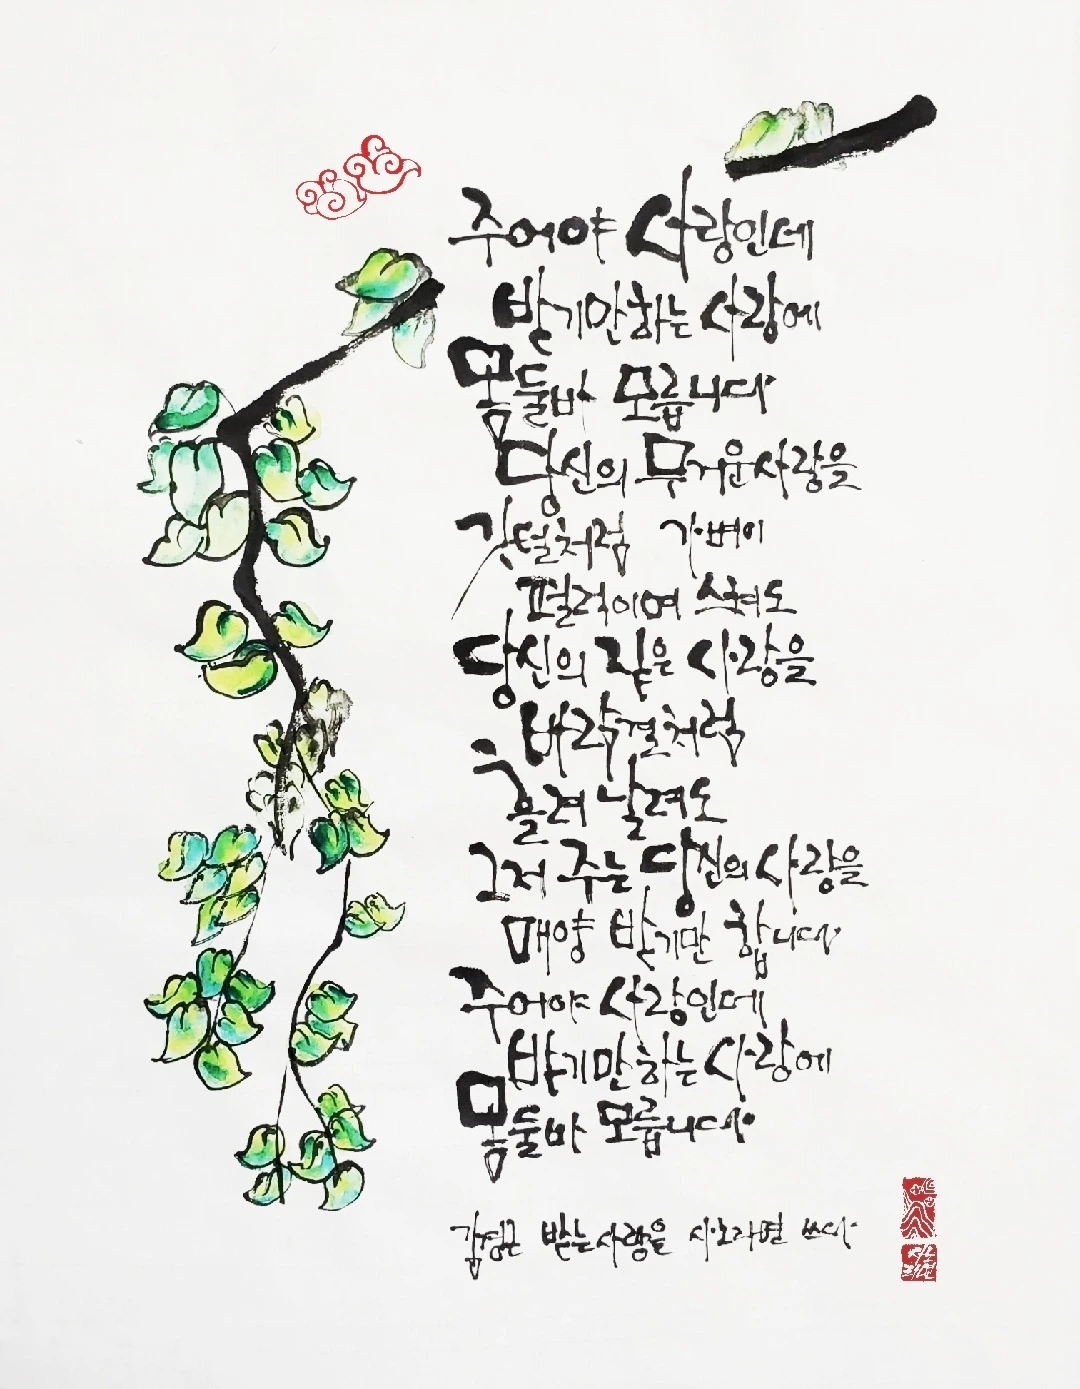 주어야 사랑인데
받기만하는 사랑에
몸둘바 모릅니다
당신의 무거운 사랑을
깃털처럼 가벼이
펄럭이며 스쳐도
당신의 깊은 사랑을
바람결처럼
흘려 날려도
그저 주는 당신의 사랑을
매양 받기만 합니다
주어야 사랑인데
받기만 하는 사랑에
몸둘바 모릅니다
받는사랑을 쓰다